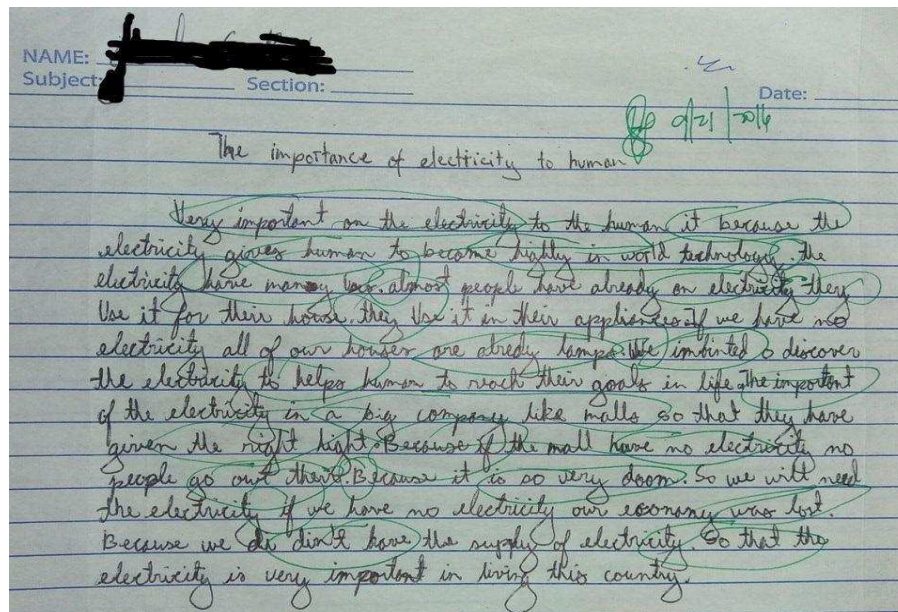 NAME:
Subject: Section:
Date:
9/21/2016
The importance of electricity to human
Very important on the electricity to the human it because the
electricity gives human to become highly in world technology. the
electricity have many law. almost people have already an electricity they
Use it for their house. they Use it in their appliances. If we have no
electricity all of our houses are alredy lamps. We imbinted o discover
the electricity to helps human to reach their goals in life. The important
of the electricity in a big company like malls so that they have
given the right light. Because if the mall have no electricity no
people go out theirs. Because it is so very doom. So we will need
the electricity if we have no electricity our economy was lost.
Because we din't have the supply of electricity. So that the
electricity is very important in living this country.